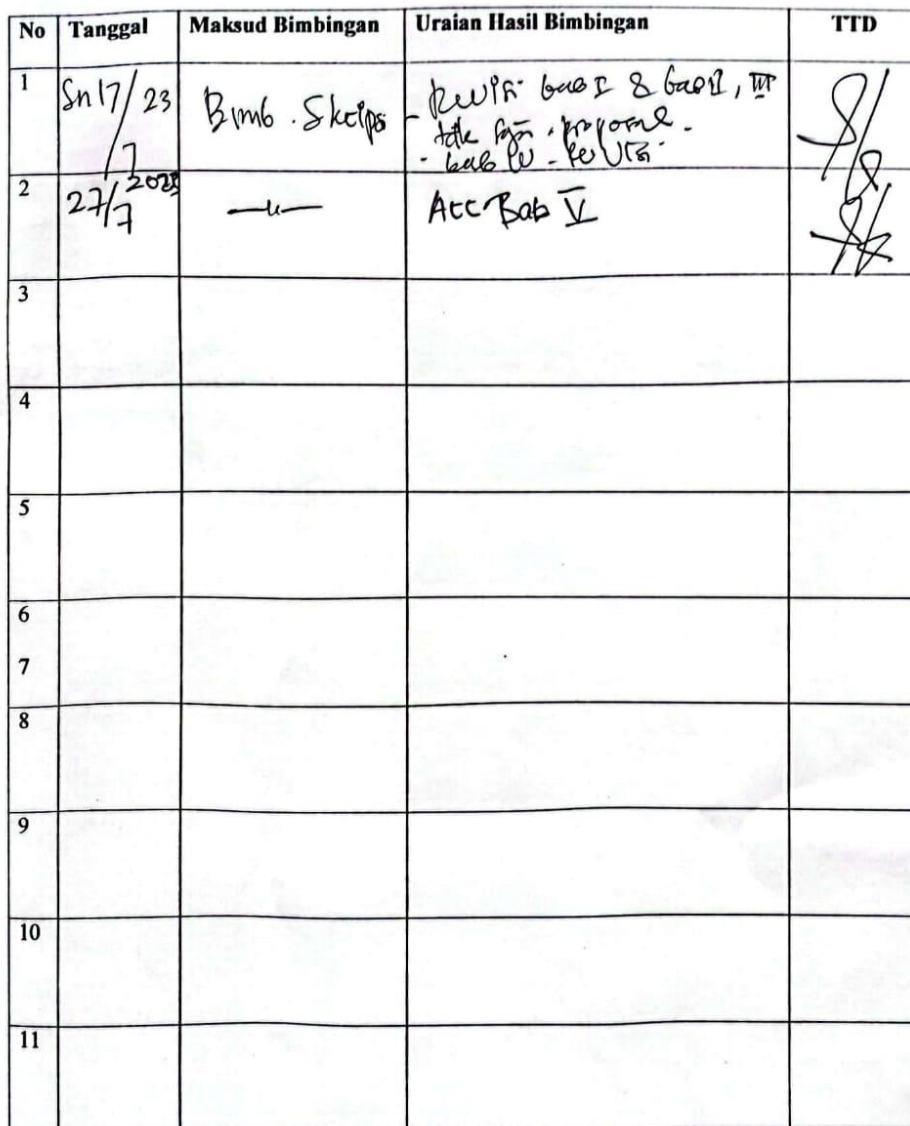 No Tanggal Maksud Bimbingan Uraian Hasil Bimbingan TTD
1 Sn 17/7 23 Bimb. Skripsi - Revisi bab I & bab II, III
proposal.
- bab IV - Revisi.
2 27/7 2023 —u— Acc Bab V
3
4
5
6
7
8
9
10
11